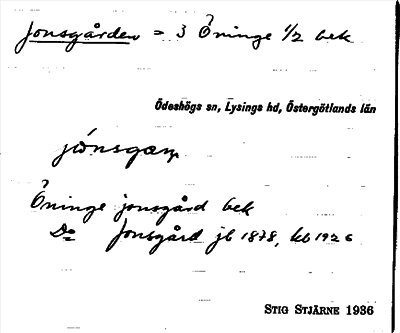 Jonsgården = 3 Öninge 1/2 bek
Ödeshögs sn, Lysings hd, Östergötlands län
Öninge jonsgård bek
Do Jonsgård jb 1878, kb 1926
STIG STJÄRNE 1936